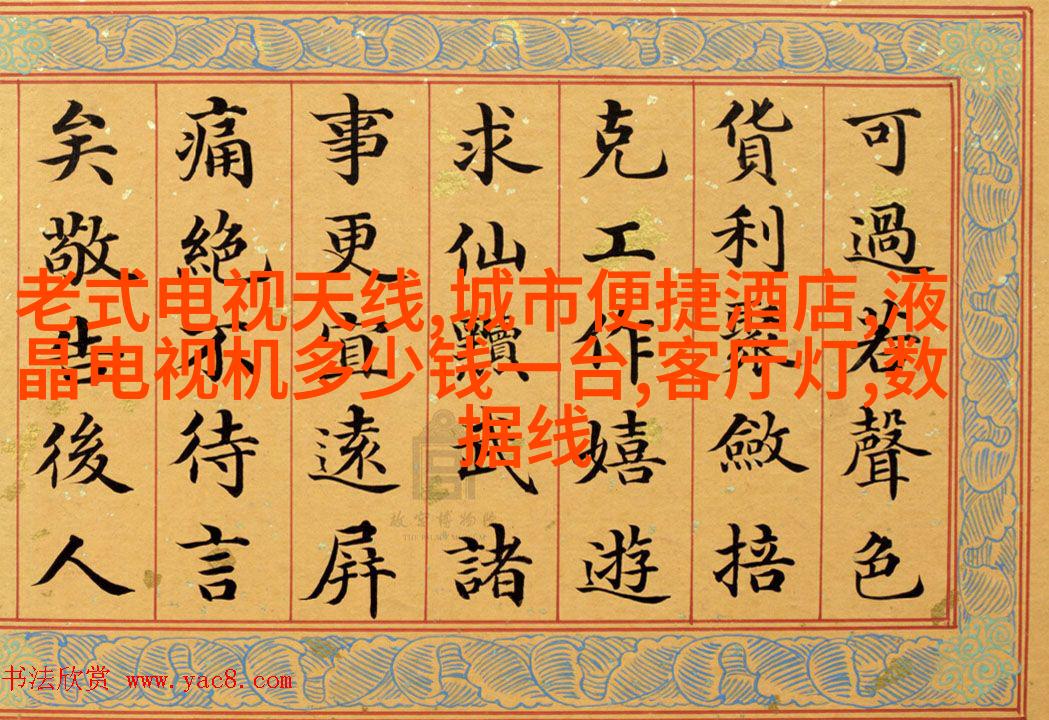 可過若聲色
貨利聚斂掊
克工作嬉遊
求仙黷武諸
事更宜遠屏
痛絕不待言
矣敬告後人
老式电视天线,城市便捷酒店,液
晶电视机多少钱一台,客厅灯,数
据线
故宫博物院
书法欣赏 www.yac8.com